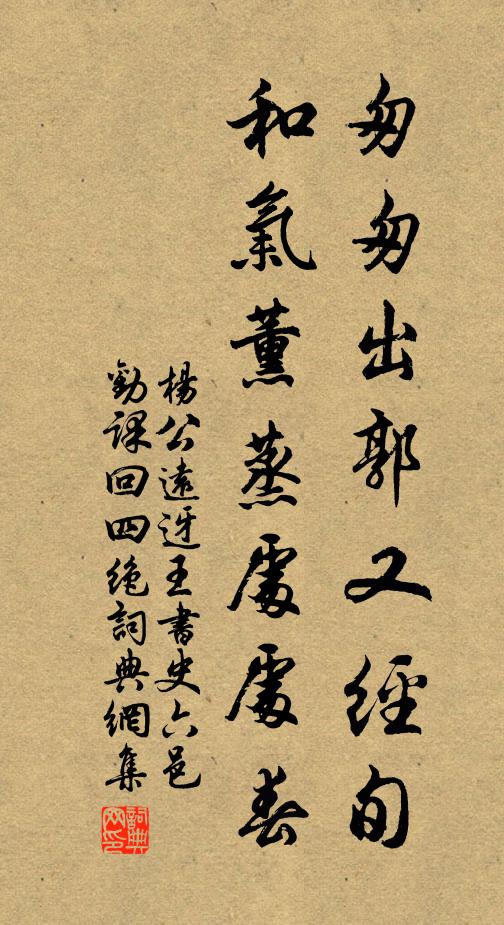 匆匆出郭又經旬
和氣薰蒸處處春
楊公遠迓王書史六邑
勸課回四絶詞典網集
詞典网印